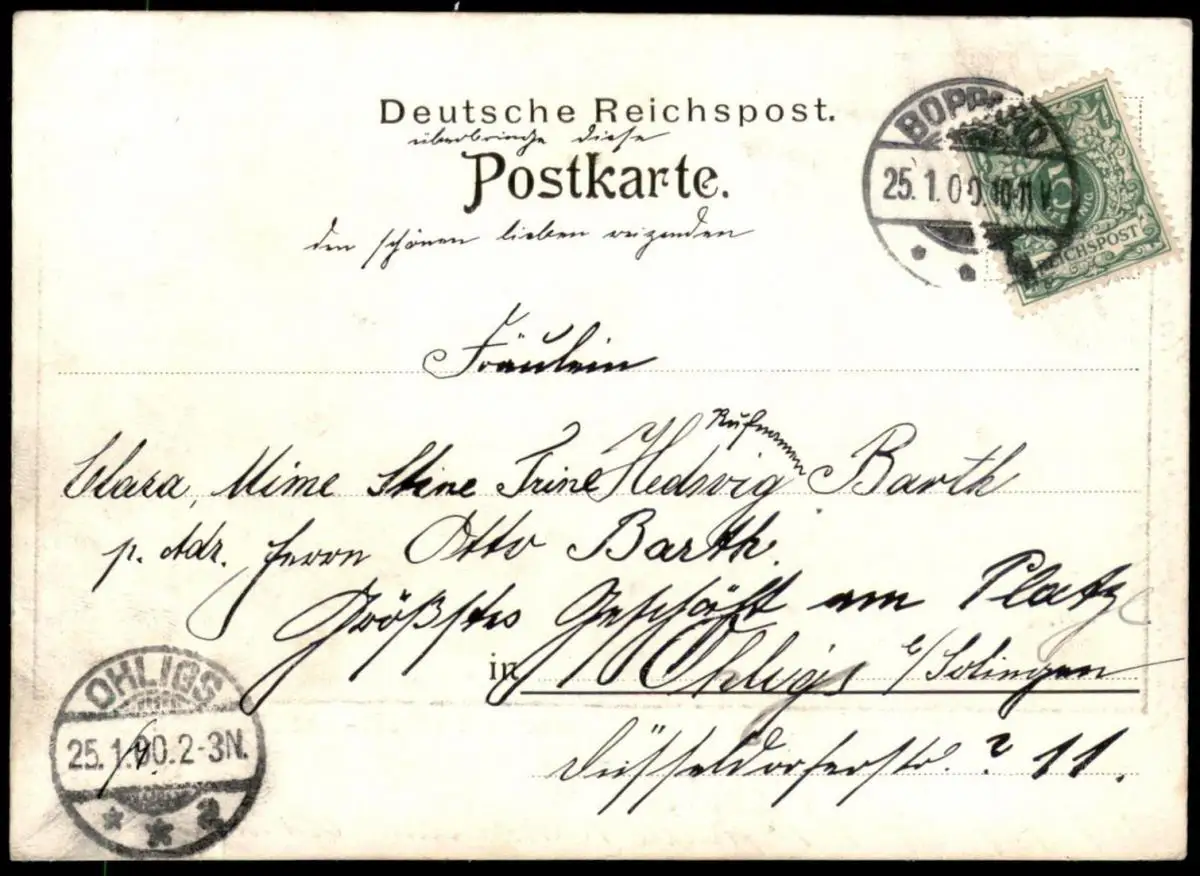 Deutsche Reichspost.
überbringe diese
Postkarte.
den schönen lieben reizenden
BOPPARD
25.1.00.10-11V.
5
REICHSPOST
Fräulein
Rufnamen
Clara, Mime Stine Trine Hedwig Barth
p. Adr. Herrn Otto Barth.
Größtes Geschäft am Platz
in Ohligs b/Solingen
Düsseldorferstr. ? 11.
OHLIGS
25.1.00.2-3N.
* * a